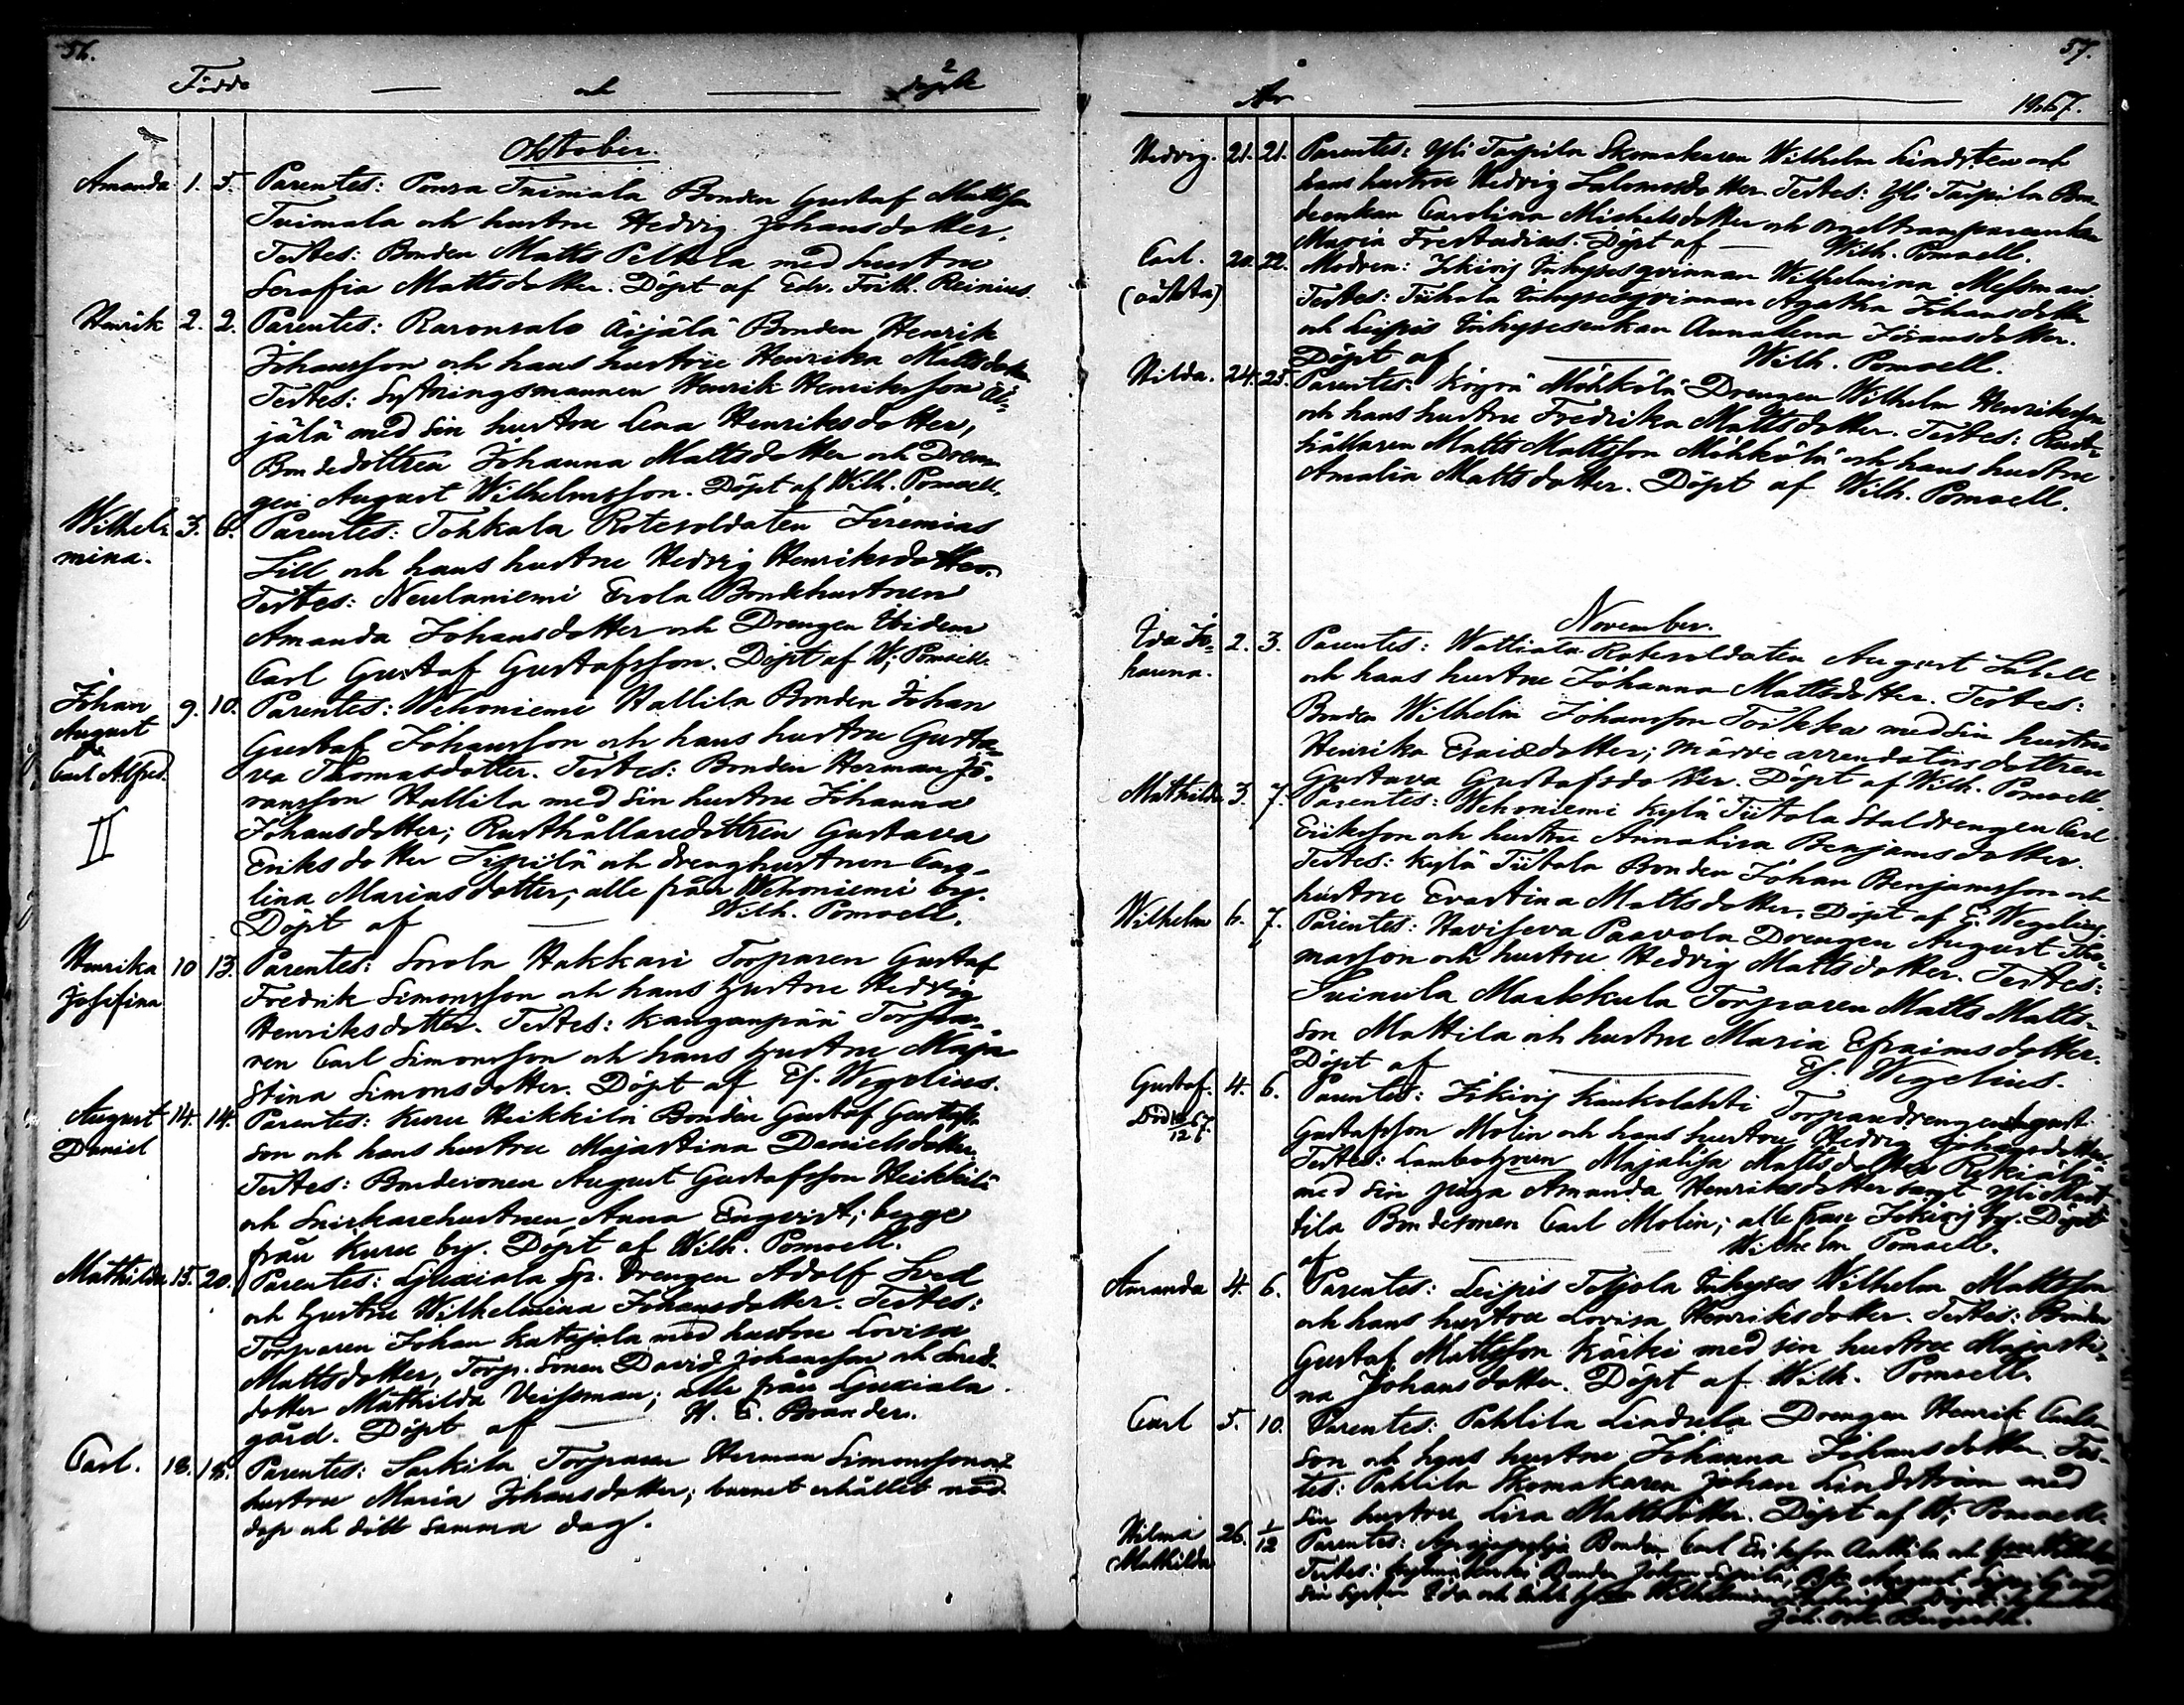 56.
Födde — och — döpte
Oktober.
Amanda 1. 5. Parentes: Ponsa Tuimala Bonden Gustaf Mattsson
Tuimala och hustru Hedvig Johansdotter.
Testes: Bonden Matts Peltola med hustru
Serafia Mattsdotter. Döpt af Edv. Frith. Reinius.
Henrik 2. 2. Parentes: Raronsalo Äijälä Bonden Henrik
Johansson och hans hustru Henrika Mattsdotter
Testes: Sytningsmannen Henrik Henriksson Äi-
jälä med sin hustru Lena Henriksdotter,
Bondedottren Johanna Mattsdotter och Dren-
gen August Wilhelmsson. Döpt af Wilh. Pomoell.
Wilhel- 3. 6. Parentes: Tohkala Rotesoldaten Jeremias
mina. Lill och hans hustru Hedvig Henriksdotter.
Testes: Neulaniemi Erola Bondehustrun
Amanda Johansdotter och Drengen Ibidem
Carl Gustaf Gustafsson. Döpt af W; Pomoell.
Johan 9. 10. Parentes: Wehoniemi Hallila Bonden Johan
August Gustaf Johansson och hans hustru Gusta-
&
Carl Alfred. va Thomasdotter. Testes: Bonden Herman Jö-
ransson Hallila med sin hustru Johanna
II Johansdotter; Rusthållaredottren Gustava
Eriksdotter Sipilä och drenghustrun Caro-
lina Mariasdotter, alle från Wehoniemi by.
Döpt af — Wilh. Pomoell.
Henrika 10 13. Parentes: Sorola Hakkari Torparen Gustaf
Josefina Fredrik Simonsson och hans hustru Hedvig
Henriksdotter. Testes: Kanganpää Torpa-
ren Carl Simonsson och hans hustru Maja
Stina Simonsdotter. Döpt af Ef. Wegelius.
August 14. 14. Parentes: Kuru Heikkilä Bonden Gustaf Gustafs-
Daniel son och hans hustru Majastina Danielsdotter
Testes: Bondesonen August Gustafsson Heikkilä
och Snickarehustrun Anna Engvist; begge
från Kuru by. Döpt af Wilh. Pomoell.
Mathilda 15. 20. Parentes: Liuxiala Sp. Drengen Adolf Sved
och hustru Wilhelmina Johansdotter. Testes:
Torparen Johan Katajala med hustru Lovisa
Mattsdotter, Torp. Sonen David Johansson och Smed-
dotter Mathilda Veissman; alle från Liuxiala
gård. Döpt af — H. G. Brander.
Carl. 18. 18. Parentes: Sarkila Torparen Herman Simonsson och
hustru Maria Johansdotter; barnet erhållet nöd-
dop och dött samma dag.
57.
År — 1867.
Hedvig. 21. 21. Parentes: Yli Tarpila Skomakaren Wilhelm Lindsten och
hans hustru Hedvig Salomosdotter. Testes: Yli Tarpila Bon-
deenkan Carolina Michelsdotter och orgeltramparenkan
Maria Frestadius. Döpt af — Wilh. Pomoell.
Carl. 20. 22. Modren: Jikivij Inhysesqvinnan Wilhelmina Messman.
(oäkta) Testes: Tiihala Inhysesqvinnan Agatha Johansdotter
och Leipis Inhysesenkan Annalena Jöransdotter.
Döpt af — Wilh. Pomoell.
Hilda. 24. 25. Parentes: Köyrä Möhkölä Drengen Wilhelm Henriksson
och hans hustru Fredrika Mattsdotter. Testes: Rust-
hållaren Matts Mattsson Möhkölä och hans hustru
Amalia Mattsdotter. Döpt af Wilh. Pomoell.
November.
Ida Jo- 2. 3. Parentes: Wattiala Rotesoldaten August Sabell
hanna. och hans hustru Johanna Mattsdotter. Testes:
Bonden Wilhelm Johansson Torkko med sin hustru
Henrika Esaiædotter; arrendatorsdottren
Gustava Gustafsdotter. Döpt af Wilh. Pomoell.
Mathilda 3. 7. Parentes: Wehoniemi Kylä Tiitola Staldrengen Carl
Eriksson och hustru Annalisa Benjamsdotter.
Testes: Kylä Tiitola Bonden Johan Benjamsson och
hustru Evastina Mattsdotter. Döpt af E. Wegelius.
Wilhelm 6. 7. Parentes: Haviseva Paavola Drengen August Tho-
masson och hustru Hedvig Mattsdotter. Testes:
Suinula Markkula Torparen Matts Matts-
son Mattila och hustru Maria Efraimsdotter.
Döpt af — Ef. Wegelius.
Gustaf. 4. 6. Parentes: Jikivij Kaukolahti Torparedrengen August
Gustafsson Molin och hans hustru Hedvig Johansdotter.
Testes: Majalisa Mattsdotter
med sin piga Amanda Henriksdotter samt Yli
tila Bondesonen Carl Molin; alle från Jokivij by. Döpt
af — Wilhelm Pomoell.
Amanda 4. 6. Parentes: Leipis Tohjola Inhyses Wilhelm Mattsson
och hans hustru Lovisa Henriksdotter. Testes: Bonden
Gustaf Mattsson Kärki med sin hustru Majasti-
na Johansdotter. Döpt af Wilh. Pomoell.
Carl 5. 10. Parentes: Pahlila Lindula Drengen Henrik Carls-
son och hans hustru Johanna Johansdotter. Tes-
tes: Pahlila Skomakaren Johan Lindström med
sin hustru Lisa Mattsdotter. Döpt af W; Pomoell.
Hilma 26. 1/12 Parentes: Bonden Carl Eriksson Anttila och
Mathilda Testes: Bonden Johan Sipilä, August
sin syster Ida och Wilhelmina Döpt
Joh.